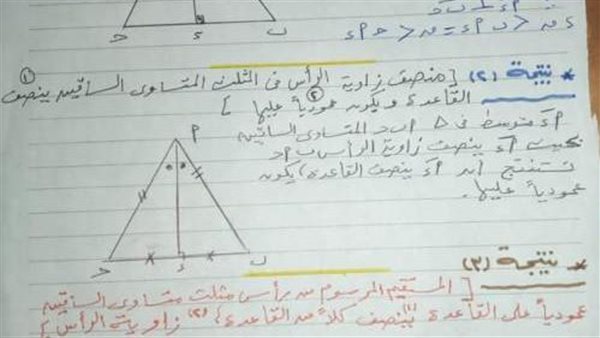 ء ب
ق د < ب ء = ق د < ح ء
* نتيجة (٢) [ منصف زاوية الرأس فى المثلث المتساوى الساقين ينصف ①
القاعدة و يكون عموديا ② عليها ]
ء متوسط فى △ ب ح المتساوى الساقين
بحيث ء ينصف زاوية الرأس ب ح
نستنتج أن ء ينصف القاعدة ، يكون
عموديا عليها .
ح ء ب
* نتيجة (٣)
[ المستقيم المرسوم من رأس مثلث متساوى الساقين
عموديا على القاعدة ينصف (١) كلاً من القاعدة ، (٢) زاوية الرأس ]